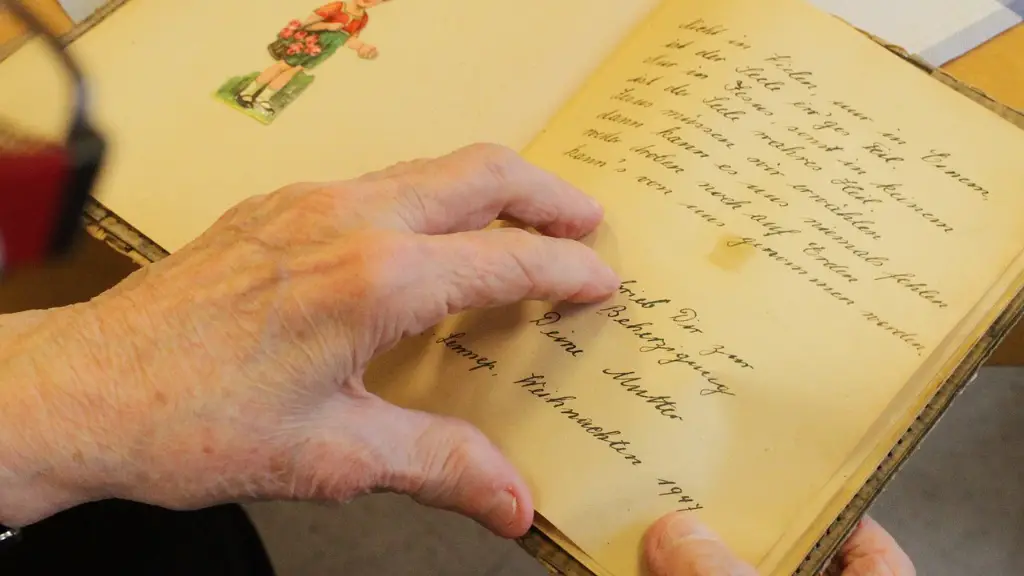 Nicht in Vielen, nur in Einem,
ist der Seele einzges Teil.
Nur in Jesus, sonst in keinem
ist der Seele wahres Heil
Jesus müssen wir erwählen
dann kann es uns niemals fehlen
weder droben noch auf Erden
kann's von uns genommen werden.
Dir zur
Beherzigung
Deine Mutter
Lennep. Weihnachten 1947